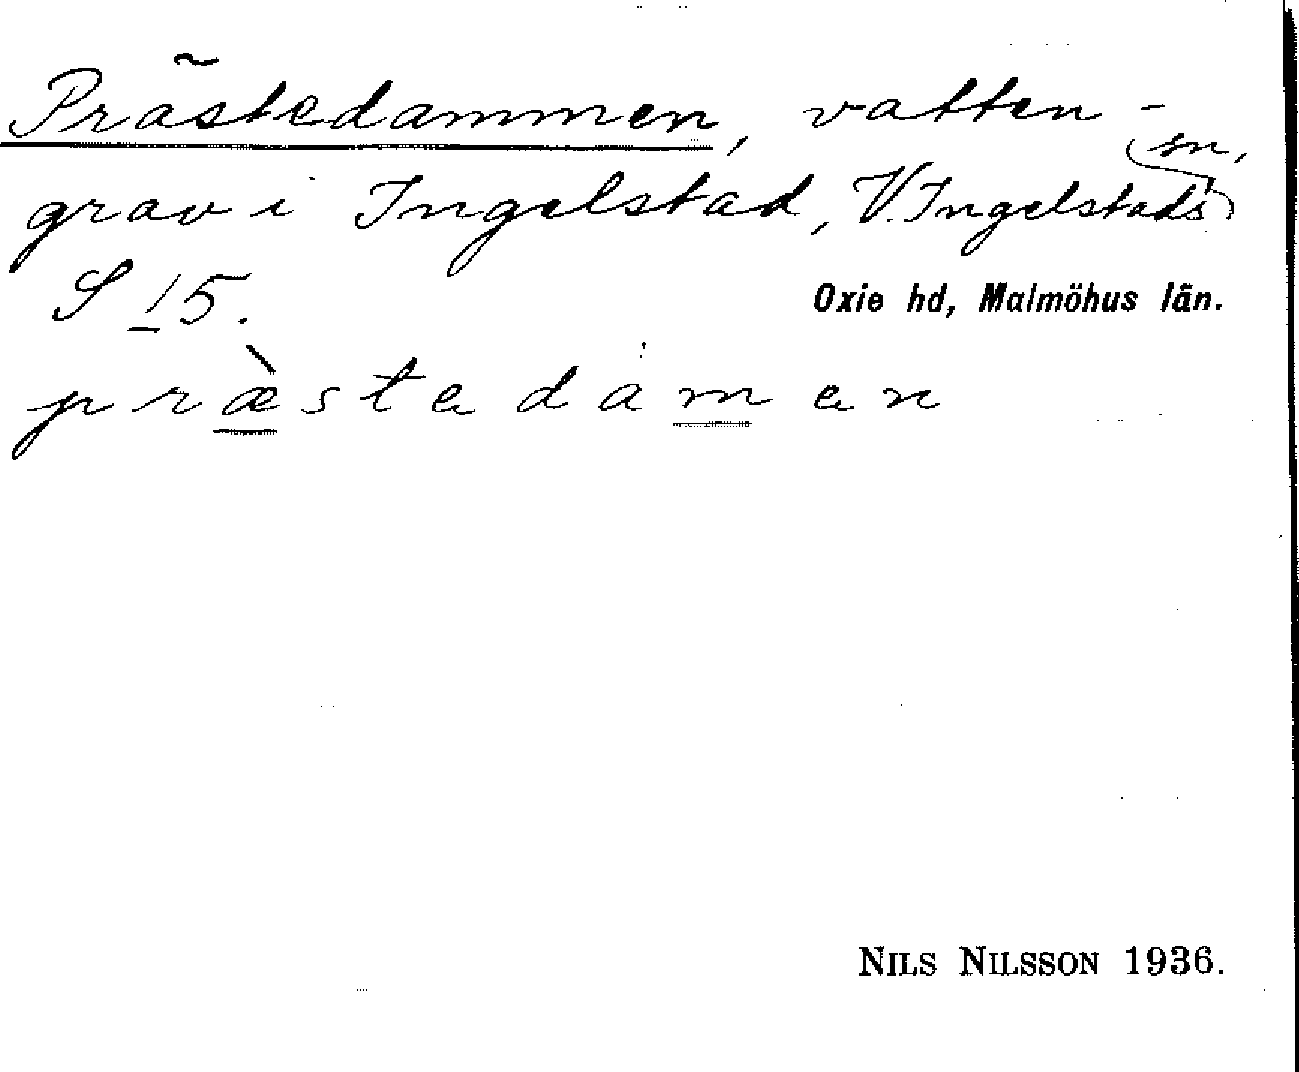 Prästedammen, vatten-
grav i Ingelstad, V. Ingelstads sn,
S 15.
Oxie hd, Malmöhus län.
præ̀stedamen
NILS NILSSON 1936.